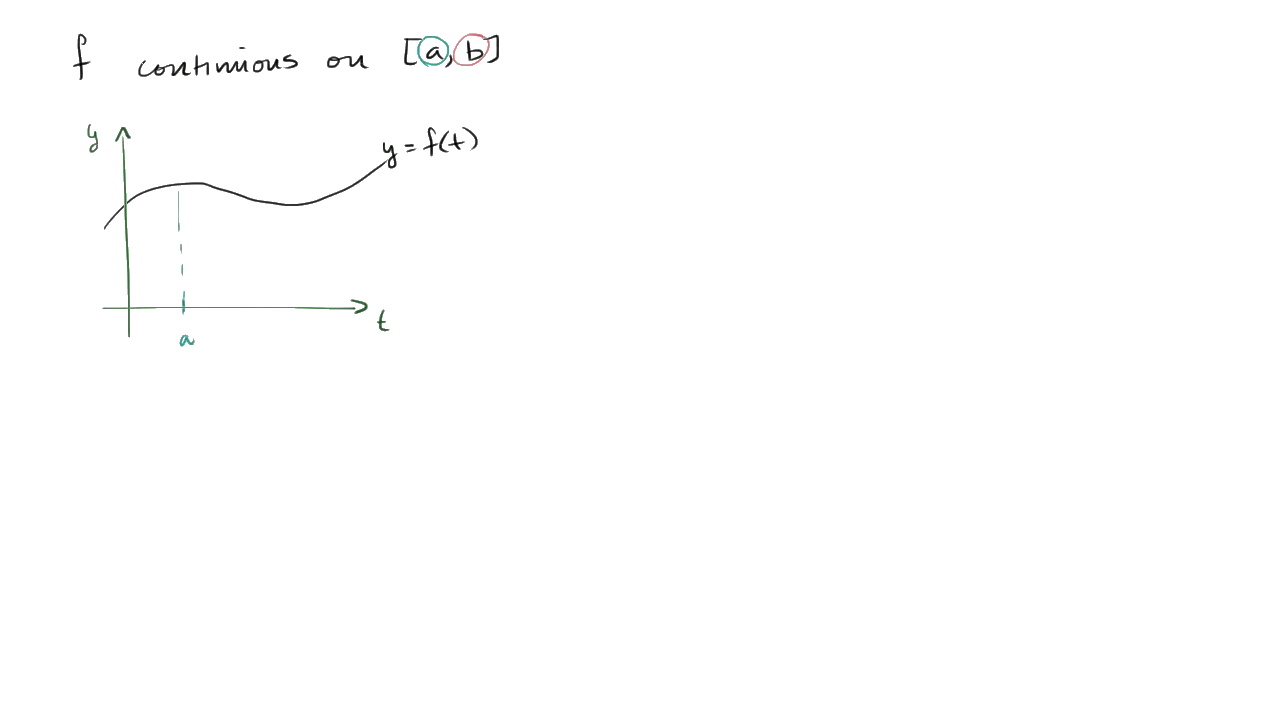 f continious on [a, b]
y
y = f(t)
t
a